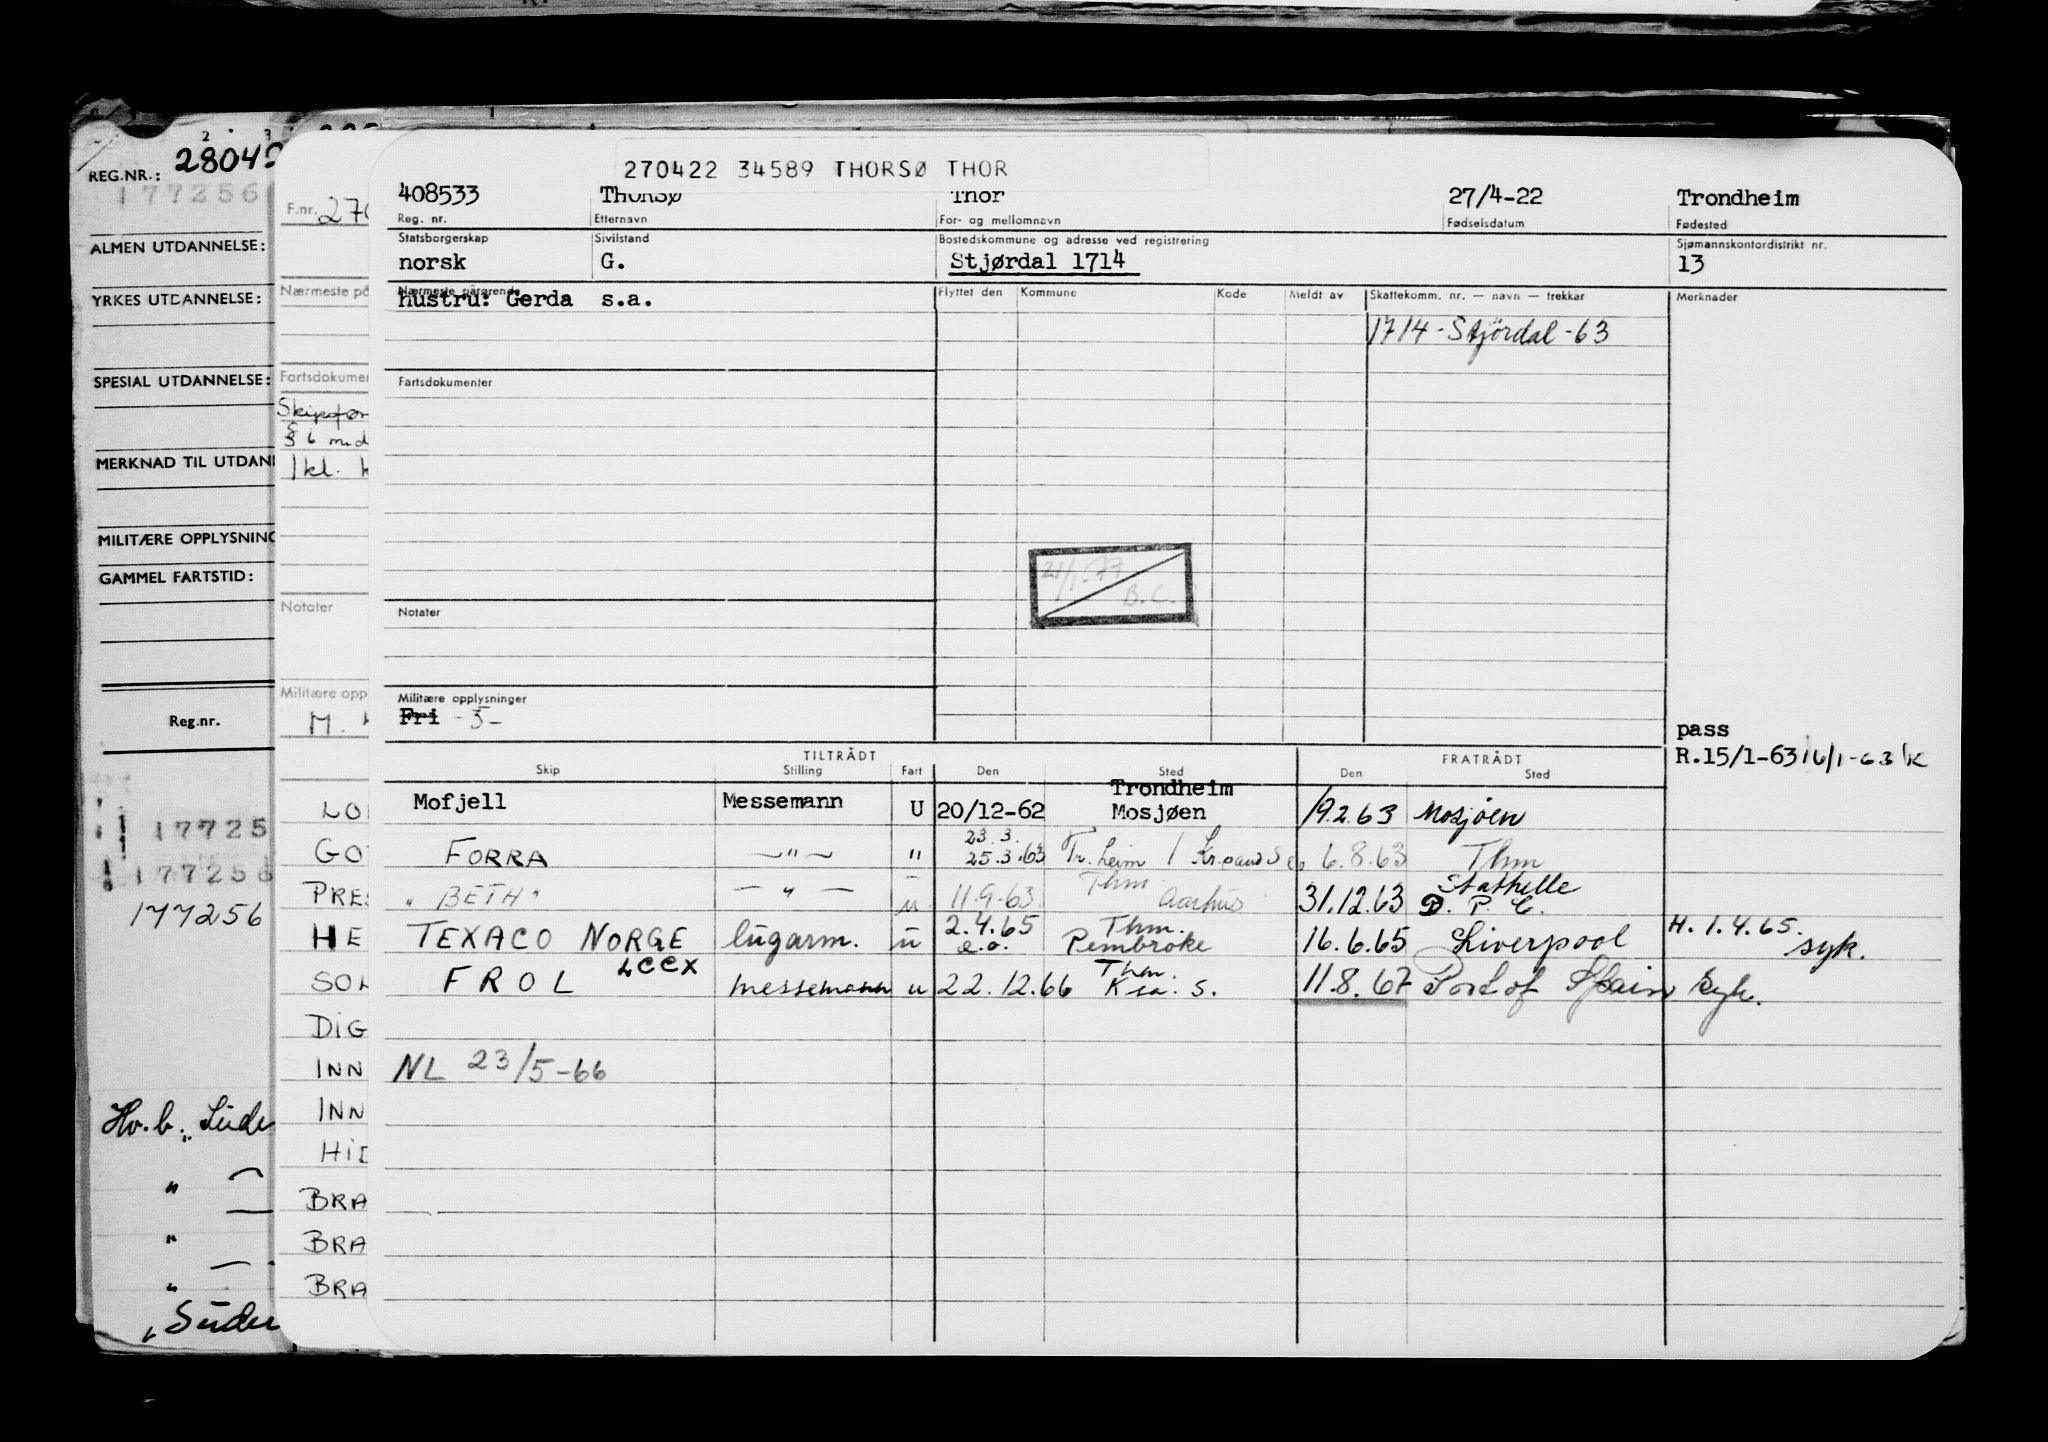 REG.NR.: 28049
177256
ALMEN UTDANNELSE:
YRKES UTDANNELSE:
SPESIAL UTDANNELSE:
MERKNAD TIL UTDAN
MILITÆRE OPPLYSNING
GAMMEL FARTSTID:
Reg.nr.
17725
177256
177256
Hv.b. Süde
"
"
"
Süder
F.nr. 270
Nærmeste på
Fartsdokumen
Skipsfør
§ 6 m.d
1 kl. k
Notater
Militære opp
M.
LO
GO
PRES
HE
SOL
DIG
INN
INN
HID
BRA
BRA
BRA
270422 34589 THORSØ THOR
408533 THORSØ Thor 27/4-22 Trondheim
Reg. nr. Etternavn For- og mellomnavn Fødselsdatum Fødested
Statsborgerskap Sivilstand Bostedskommune og adresse ved registrering Sjømannskontordistrikt nr.
norsk G. Stjørdal 1714 13
Nærmeste pårørende Flyttet den Kommune Kode Meldt av Skattekomm. nr. — navn — trekkar Merknader
hustru: Gerda s.a.
1714-Stjördal-63
Fartsdokumenter
21/1-77
B.C.
Notater
Militære opplysninger
Fri -5-
pass
R.15/1-63 16/1-63 K
TILTRÅDT FRATRÅDT
Skip Stilling Fart Den Sted Den Sted
Mofjell Messemann U 20/12-62 Trondheim Mosjøen 19.2.63 Mosjöen
FORRA —"— " 23.3. 25.3.63 Tr.heim / Kr.sand S 6.8.63 Thm
"BETH" —"— u 11.9.63 Thm. Aarhus 31.12.63 Stathelle D.P.C.
TEXACO NORGE lugarm. u 2.4.65 e.o. Thm. Pembroke 16.6.65 Liverpool H.1.4.65. syk.
FROL LCCX messemann u 22.12.66 Thm. Krs. S. 11.8.67 Port of Spain Syk.
NL 23/5-66